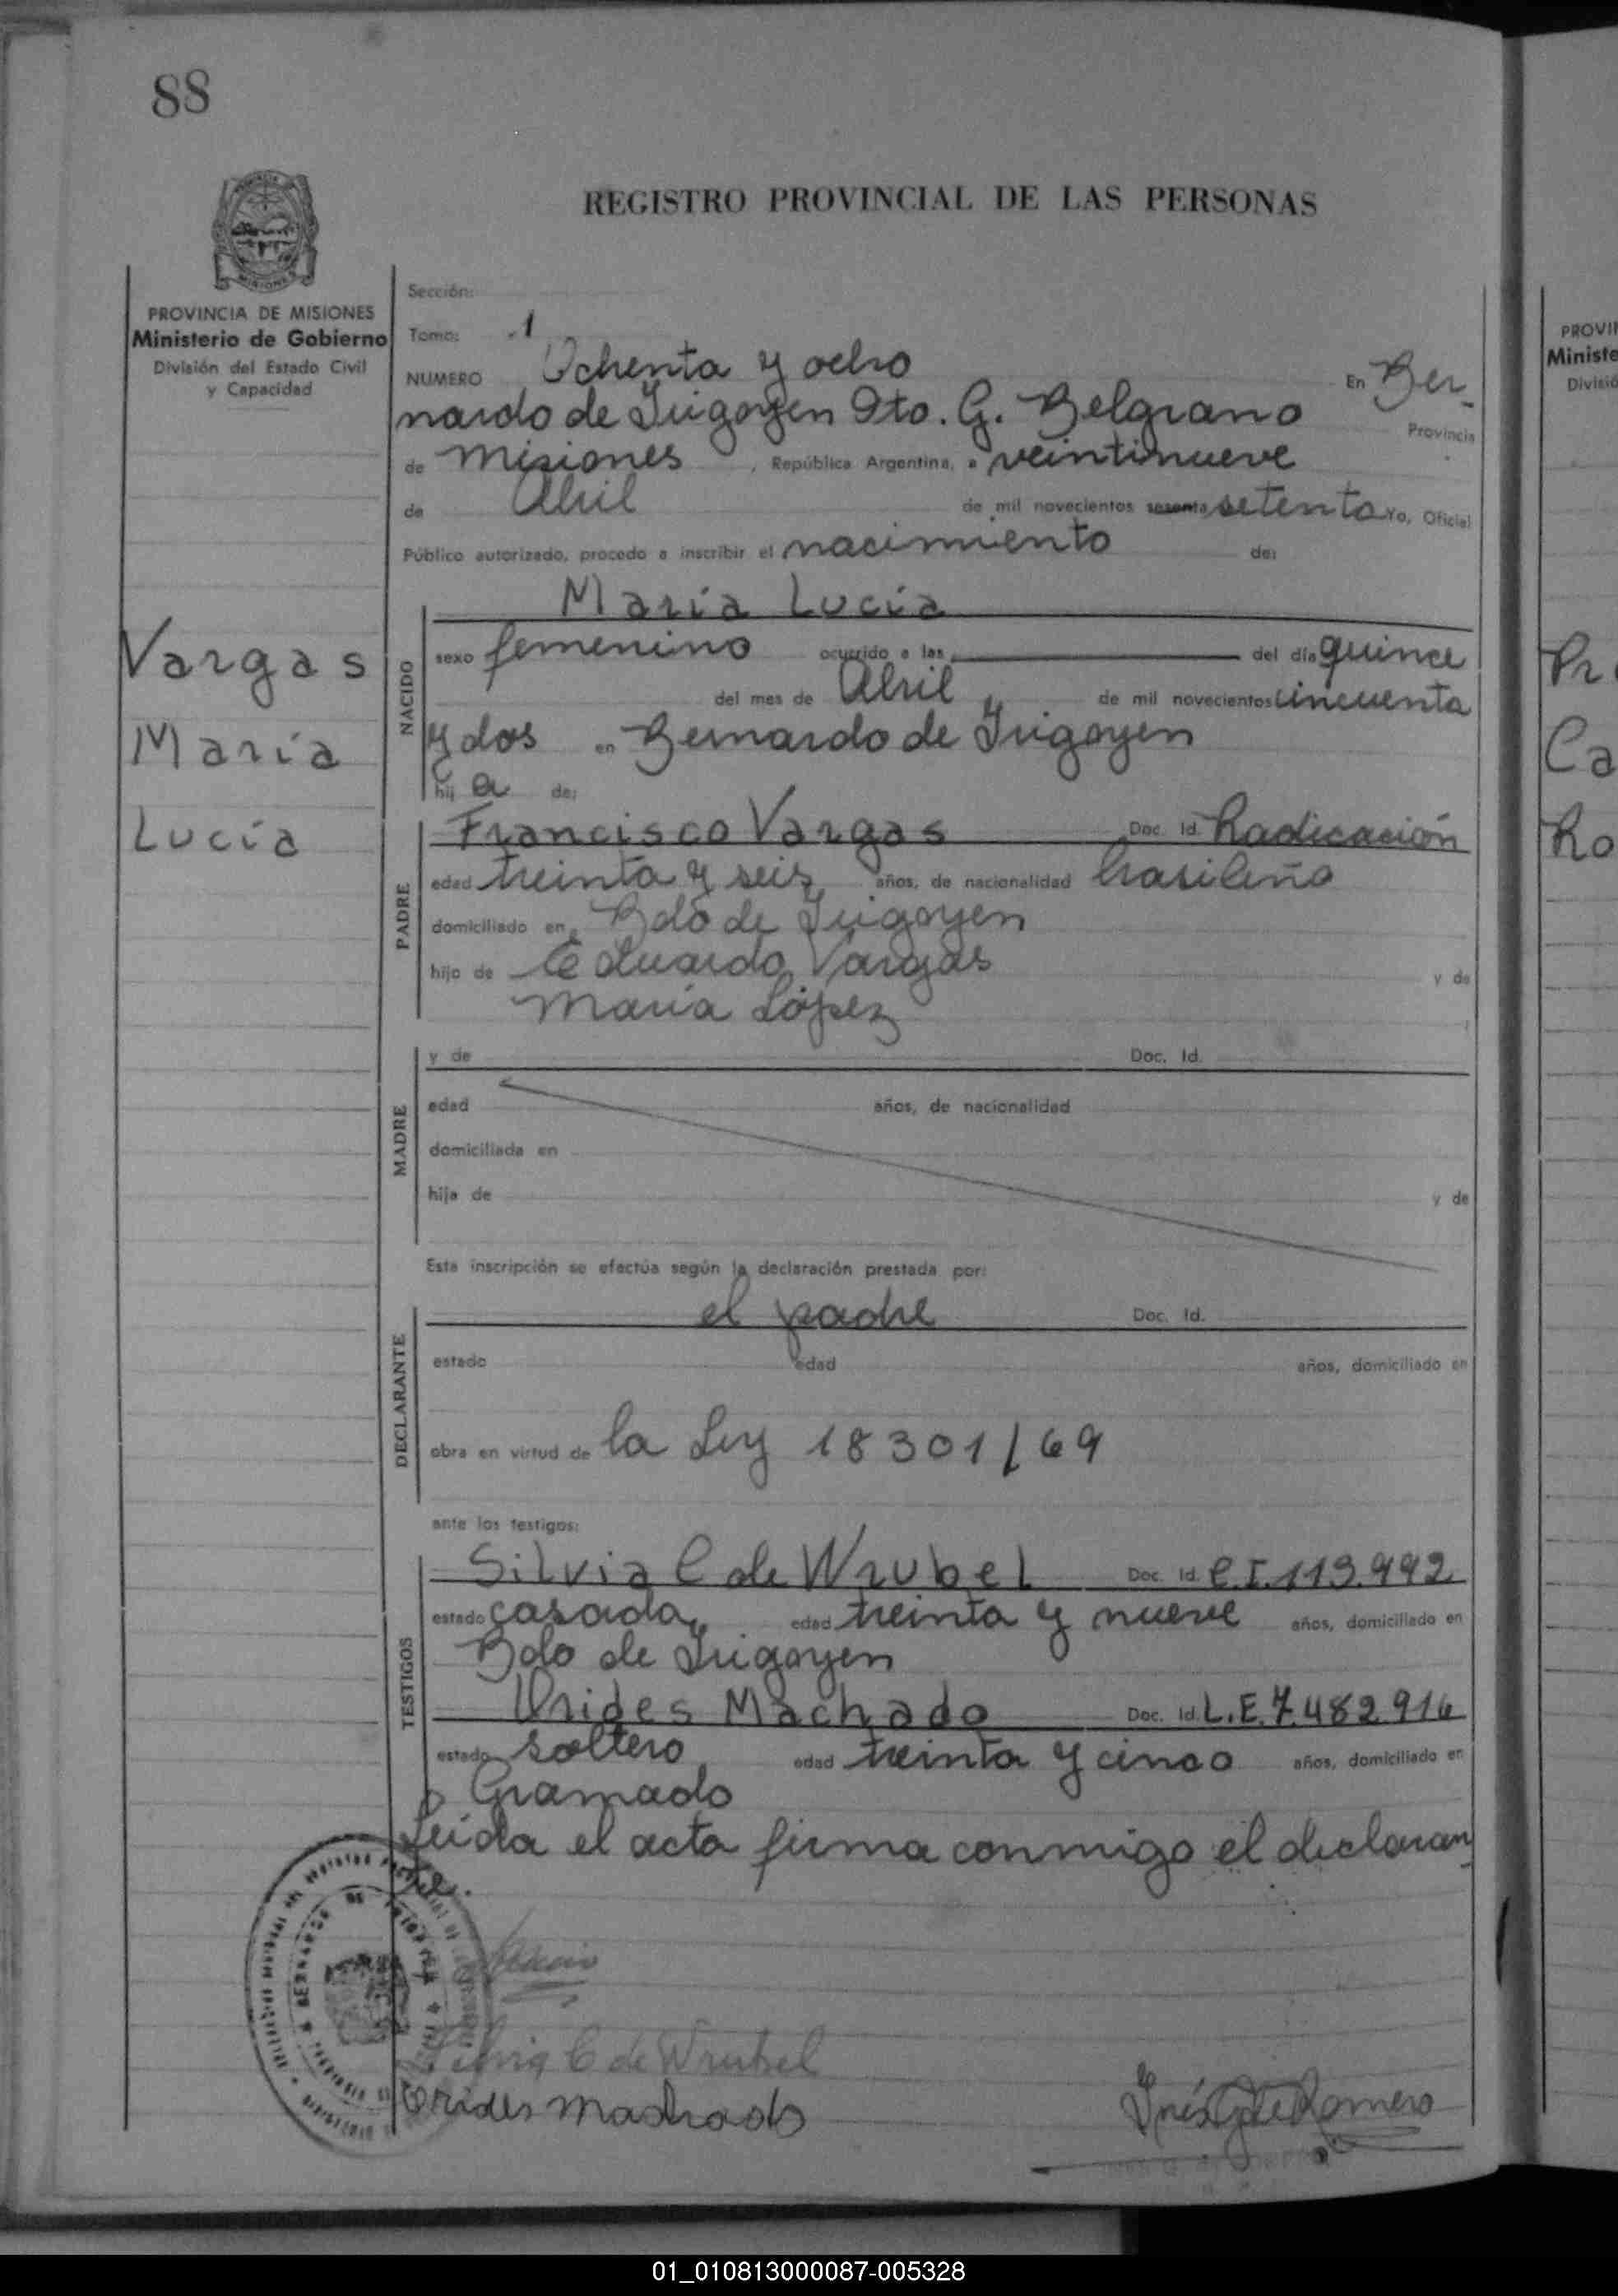 88
REGISTRO PROVINCIAL DE LAS PERSONAS
PROVINCIA DE MISIONES
Ministerio de Gobierno
División del Estado Civil
y Capacidad
Vargas
María
Lucía
Sección:
Tomo: 1
NUMERO Ochenta y ocho En Ber-
nardo de Irigoyen Dto. G. Belgrano Provincia
de Misiones, República Argentina, a veintinueve
de Abril de mil novecientos sesenta setenta Yo, Oficial
Público autorizado, procedo a inscribir el nacimiento de:
NACIDO
María Lucía
sexo femenino ocurrido a las del día quince
del mes de Abril de mil novecientos cincuenta
y dos en Bernardo de Irigoyen
hij a de:
PADRE
Francisco Vargas Doc. Id. Radicación
edad treinta y seis años, de nacionalidad brasileña
domiciliado en Bdo de Irigoyen
hijo de Eduardo Vargas y de
María López
MADRE
y de Doc. Id.
edad años, de nacionalidad
domiciliada en
hija de y de
Esta inscripción se efectúa según la declaración prestada por:
DECLARANTE
el padre Doc. Id.
estado edad años, domiciliado en
obra en virtud de la Ley 18301/69
ante los testigos:
TESTIGOS
Silvia C de Wrubel Doc. Id. C.I. 113.992
estado casada edad treinta y nueve años, domiciliado en
Bdo de Irigoyen
Orides Machado Doc. Id. L.E. 7.482.916
estado soltero edad treinta y cinco años, domiciliado en
Gramado
Leída el acta firma conmigo el declaran-
te.
Silvia C de Wrubel
Orides Machado
Inés G de Romero
PROVIN
Ministe
Divisió
Ca
Ro
01_010813000087-005328